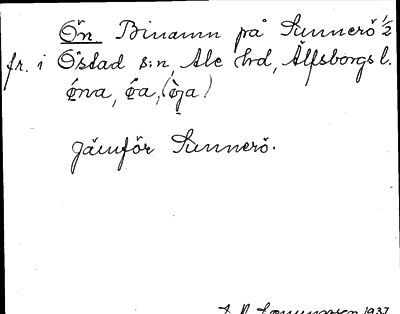 Ön Binamn på Sunnerö 1/2
fr. i Östad s:n, Ale hd, Älfsborgs l.
øna, øa, (øja)
Jämför Sunnerö.
1937